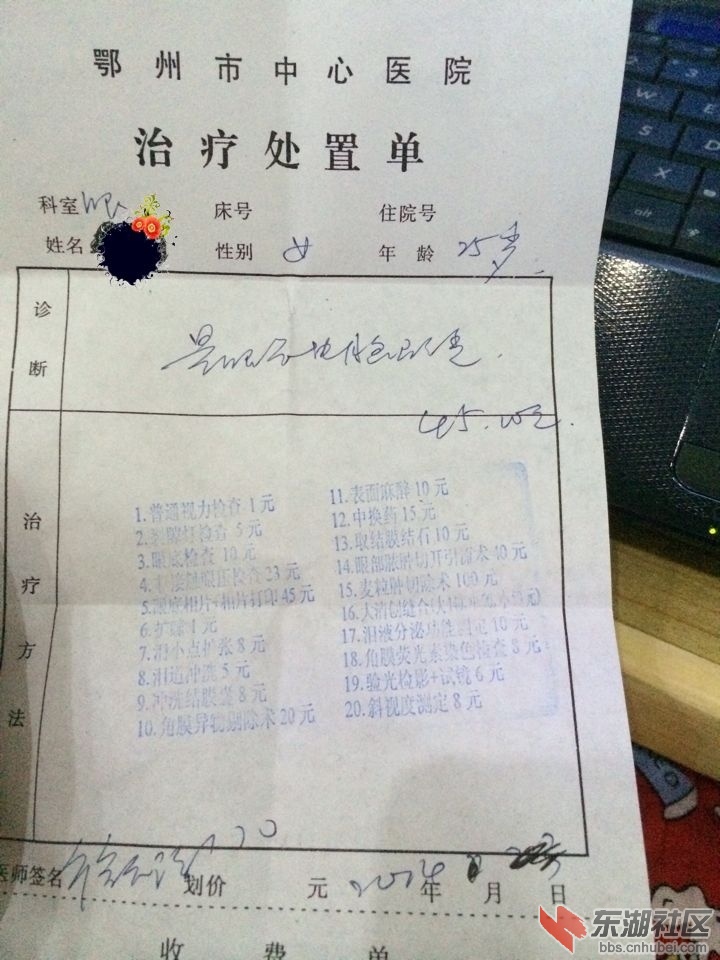 鄂州市中心医院
治疗处置单
科室 眼 床号 住院号
姓名 性别 女 年龄 25岁
诊断
45.00元
治疗方法
1.普通视力检查 1元
2.裂隙灯检查 5元
3.眼底检查 10元
4.非接触眼压检查 23元
5.眼底相片+相片打印 45元
6.扩瞳 1元
7.泪小点扩张 8元
8.泪道冲洗 5元
9.冲洗结膜囊 8元
10.角膜异物剔除术 20元
11.表面麻醉 10元
12.中换药 15元
13.取结膜结石 10元
14.眼部脓肿切开引流术 40元
15.麦粒肿切除术 100元
16.大清创缝合
17.泪液分泌功能测定 10元
18.角膜荧光素染色检查 8元
19.验光检影+试镜 6元
20.斜视度测定 8元
医师签名 划价 元 2014年 月 日
收费单
东湖社区
bbs.cnhubei.com